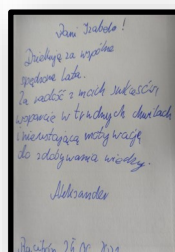 Pani Izabelo!
Dziękuję za wspólnie
spędzone lata.
Za radość z moich sukcesów,
wsparcie w trudnych chwilach
i nieustającą motywację
do zdobywania wiedzy.
Aleksander